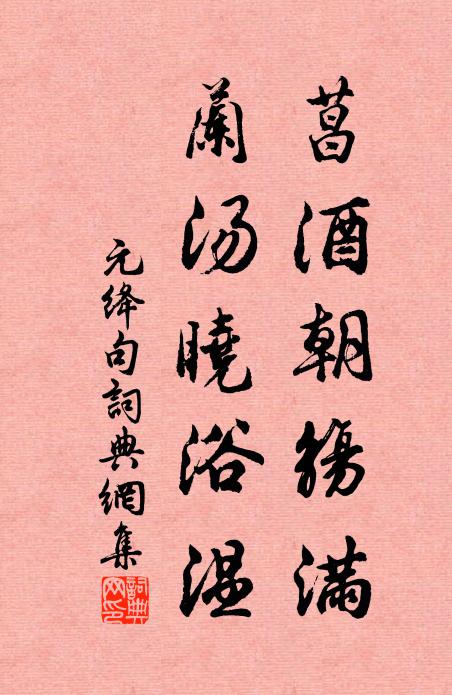 菖酒朝觴滿
蘭湯曉浴溫
元绛句詞典網集
詞典网印